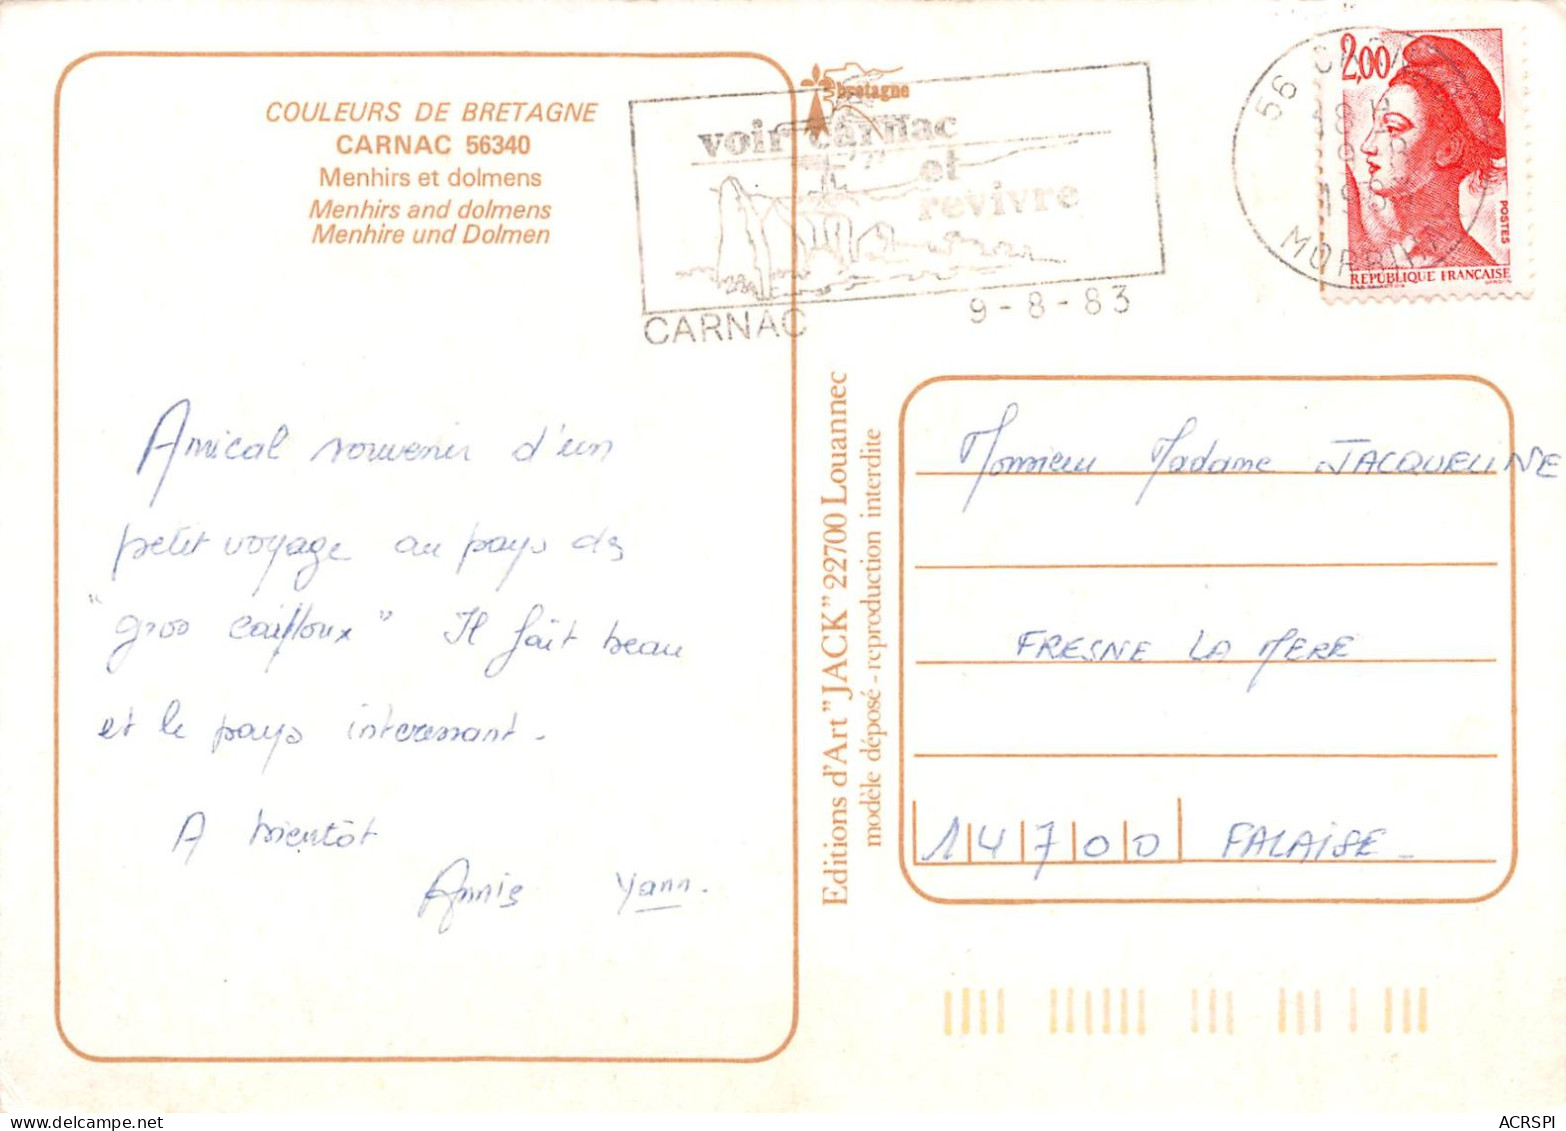 COULEURS DE BRETAGNE
CARNAC 56340
Menhirs et dolmens
Menhirs and dolmens
Menhire und Dolmen
Amical souvenir d'un
petit voyage au pays des
"gros cailloux" Il fait beau
et le pays interessant.
A bientôt
Annie Yann.
bretagne
voir carnac
et
revivre
CARNAC
9-8-83
56
MORBIHAN
2,00
POSTES
REPUBLIQUE FRANÇAISE
Editions d'Art "JACK" 22700 Louannec
modèle déposé - reproduction interdite
Monsieur Madame JACQUELINE
FRESNE LA MERE
14700 FALAISE -
ACRSPI